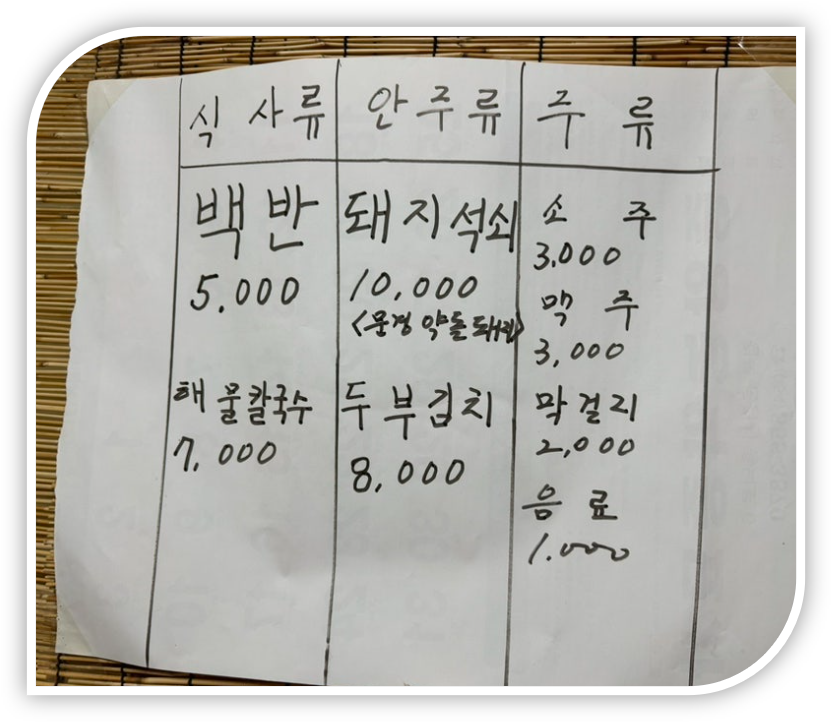 식사류 안주류 주류
백반
5.000
해물칼국수
7,000
돼지석쇠
10,000
<문경 약돌 돼지>
두부김치
8,000
소주
3.000
맥주
3,000
막걸리
2,000
음료
1.000